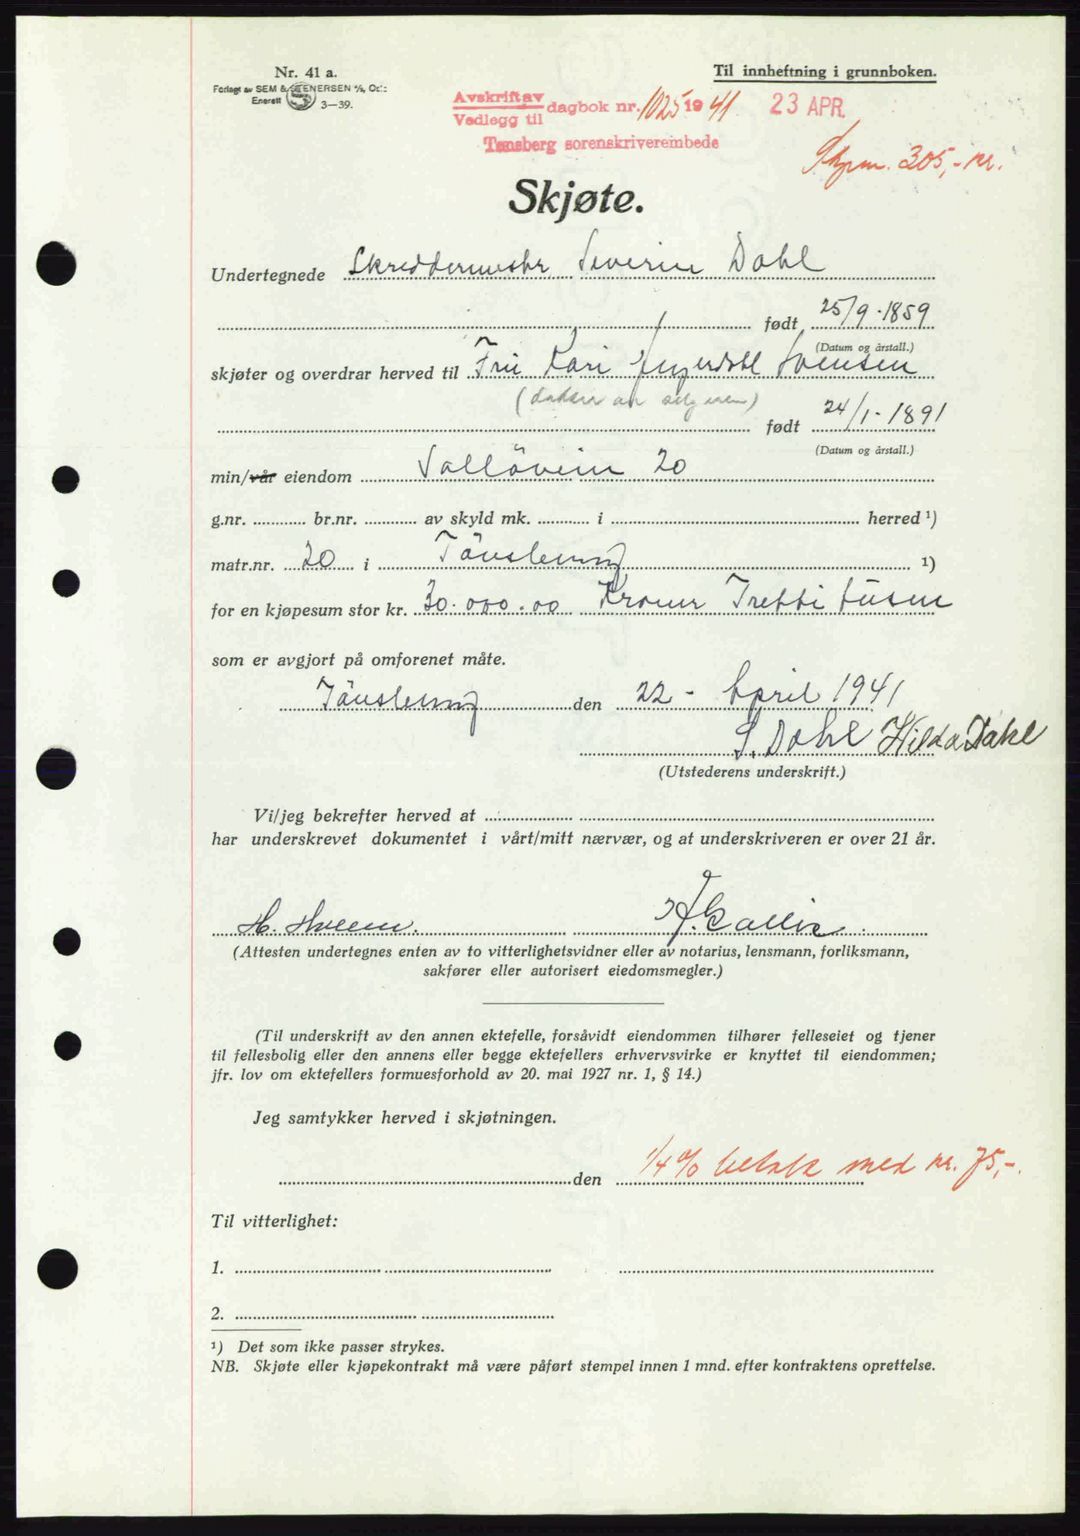 Nr. 41 a.
Til innheftning i grunnboken.
Forlagt av SEM & STENERSEN A/S, Oslo
Enerett 3—39.
Avskrift av
Vedlegg til dagbok nr. 1025 1941 23 APR.
Tønsberg sorenskriverembede
305,- kr.
Skjøte.
Undertegnede Skreddermester Severin Dahl
født 25/9-1859
(Datum og årstall.)
skjøter og overdrar herved til Fru Kari Svensen
(datter av selgeren)
født 24/1-1891
(Datum og årstall.)
min/vår eiendom Valløvein 20
g.nr. br.nr. av skyld mk. i herred ¹)
matr.nr. 20 i Tönsberg ¹)
for en kjøpesum stor kr. 30.000.00 Kroner Tretti tusen
som er avgjort på omforenet måte.
Tönsberg den 22 - April 1941
S. Dahl Hilda Dahl
(Utstederens underskrift.)
Vi/jeg bekrefter herved at
har underskrevet dokumentet i vårt/mitt nærvær, og at underskriveren er over 21 år.
H.
(Attesten undertegnes enten av to vitterlighetsvidner eller av notarius, lensmann, forliksmann,
sakfører eller autorisert eiedomsmegler.)
(Til underskrift av den annen ektefelle, forsåvidt eiendommen tilhører felleseiet og tjener
til fellesbolig eller den annens eller begge ektefellers erhvervsvirke er knyttet til eiendommen;
jfr. lov om ektefellers formuesforhold av 20. mai 1927 nr. 1, § 14.)
Jeg samtykker herved i skjøtningen.
den 1/4% betalt med kr. 75,-.
Til vitterlighet:
1.
2.
¹) Det som ikke passer strykes.
NB. Skjøte eller kjøpekontrakt må være påført stempel innen 1 mnd. efter kontraktens oprettelse.